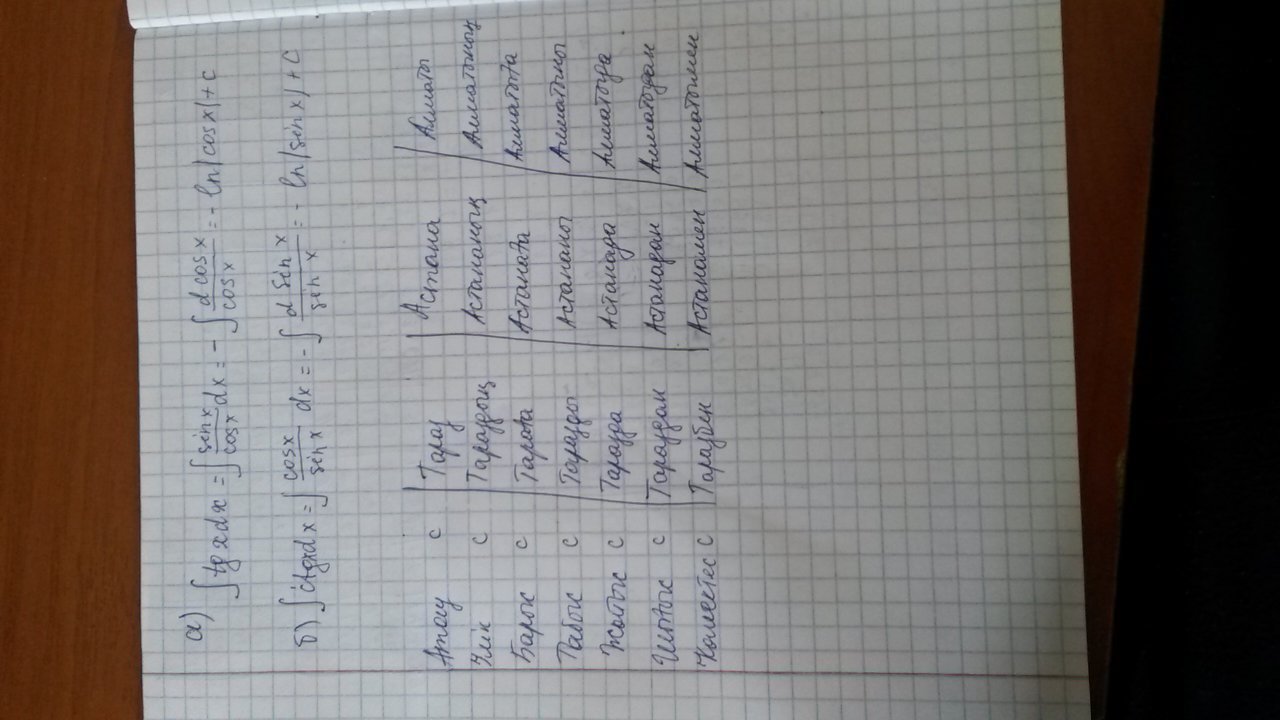 а) ∫ tg x dx = ∫ sin x / cos x dx = - ∫ d cos x / cos x = - ln |cos x| + c
б) ∫ ctgx d x = ∫ cos x / sin x dx = - ∫ d sin x / sin x = - ln |sin x| + C
Атау с | Тараз | Астана | Алматы
Ілік с | Тараздың | Астананың | Алматының
Барыс с | Таразға | Астанаға | Алматыға
Табыс с | Таразды | Астананы | Алматыны
Жатыс с | Таразда | Астанада | Алматыда
Шығыс с | Тараздан | Астанадан | Алматыдан
Көмектес с | Таразбен | Астанамен | Алматымен